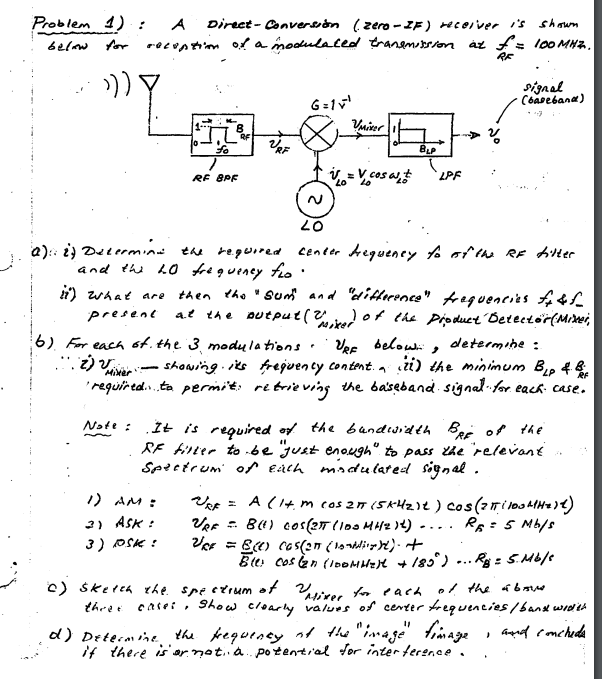 Problem 1) : A Direct-Conversion (zero-IF) receiver is shown
below for reception of a modulated transmission at f_RF = 100 MHz.
signal
(baseband)
G=1 v⁻¹
1 B_RF
0 f₀
v_RF
v_Mixer
1
0 B_LP
v_o
RF BPF
v_LO = V_LO cos ω_LO t
LPF
~
LO
a): i) Determine the required center frequency f₀ of the RF filter
and the LO frequency f_LO.
ii) What are then the "Sum" and "difference" frequencies f₊ & f₋
present at the output (v_Mixer) of the Product Detector (Mixer)
b) For each of the 3 modulations v_RF below, determine :
i) v_Mixer — showing its frequency content, ii) the minimum B_LP & B_RF
required to permit retrieving the baseband signal for each case.
Note : It is required of the bandwidth B_RF of the
RF filter to be "just enough" to pass the relevant
Spectrum of each modulated signal.
1) AM : v_RF = A (1+ m cos 2π (5kHz)t ) cos(2π(100MHz)t)
2) ASK : v_RF = B(t) cos(2π (100MHz)t) .... R_B = 5 Mb/s
3) PSK : v_RF = B(t) cos(2π (100MHz)t) +
B̅(t) cos(2π (100MHz)t + 180°) ... R_B = 5 Mb/s
c) Sketch the spectrum of v_Mixer for each of the above
three cases, Show clearly values of center frequencies/bandwidth
d) Determine the frequency of the "image" f_image , and conclude
if there is or not, a potential for interference.